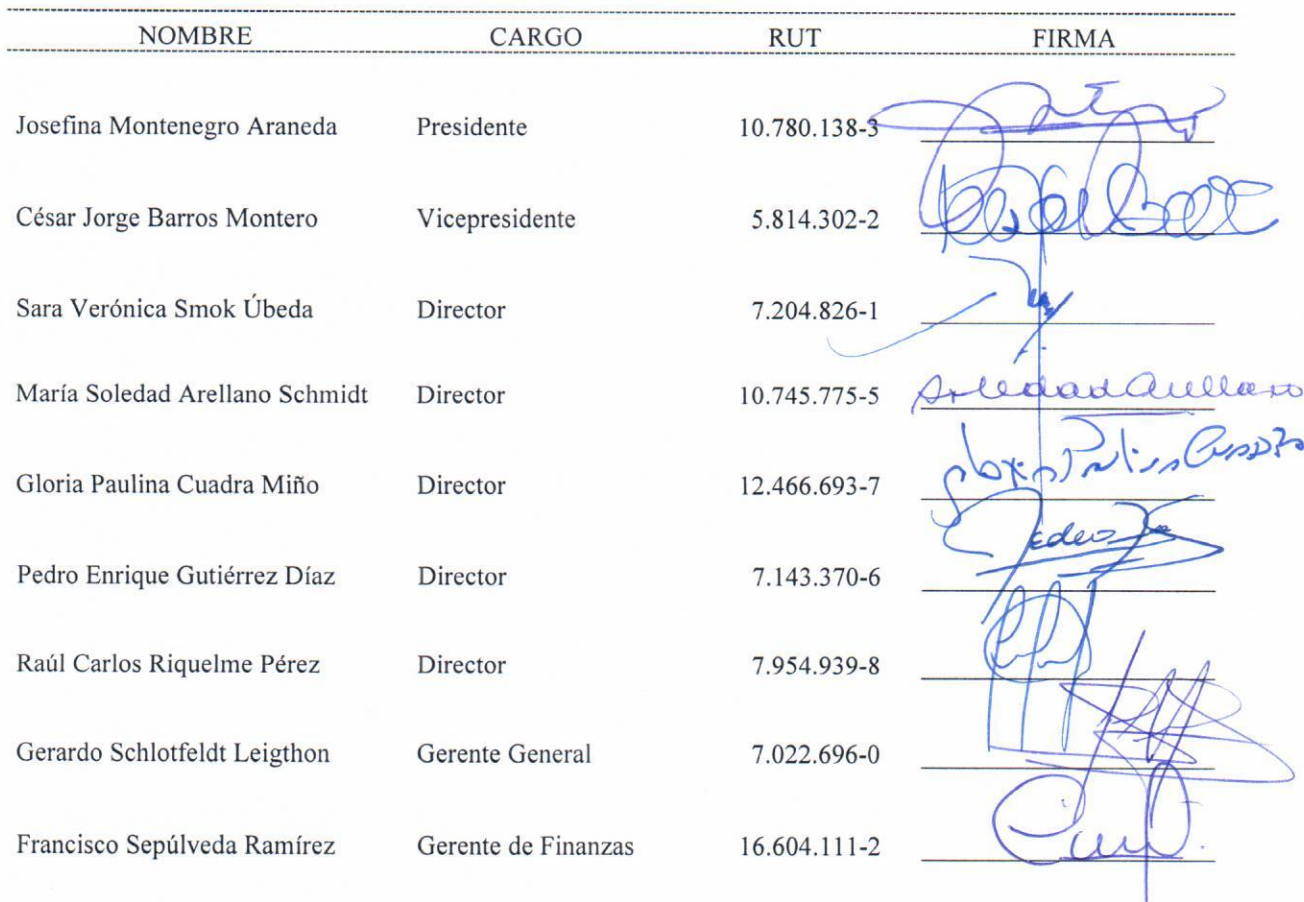 NOMBRE CARGO RUT FIRMA
Josefina Montenegro Araneda Presidente 10.780.138-3
César Jorge Barros Montero Vicepresidente 5.814.302-2
Sara Verónica Smok Úbeda Director 7.204.826-1
María Soledad Arellano Schmidt Director 10.745.775-5 Soledad Arellano
Gloria Paulina Cuadra Miño Director 12.466.693-7 Gloria Paulina Cuadra
Pedro Enrique Gutiérrez Díaz Director 7.143.370-6 Pedro
Raúl Carlos Riquelme Pérez Director 7.954.939-8
Gerardo Schlotfeldt Leigthon Gerente General 7.022.696-0
Francisco Sepúlveda Ramírez Gerente de Finanzas 16.604.111-2